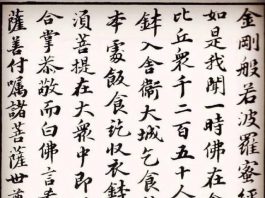 金剛般若波羅蜜經
如是我聞一時佛在舍
比丘衆千二百五十人
鉢入舍衛大城乞食
本處飯食訖收衣鉢
須菩提在大衆中即
合掌恭敬而白佛言
薩善付囑諸菩薩世尊